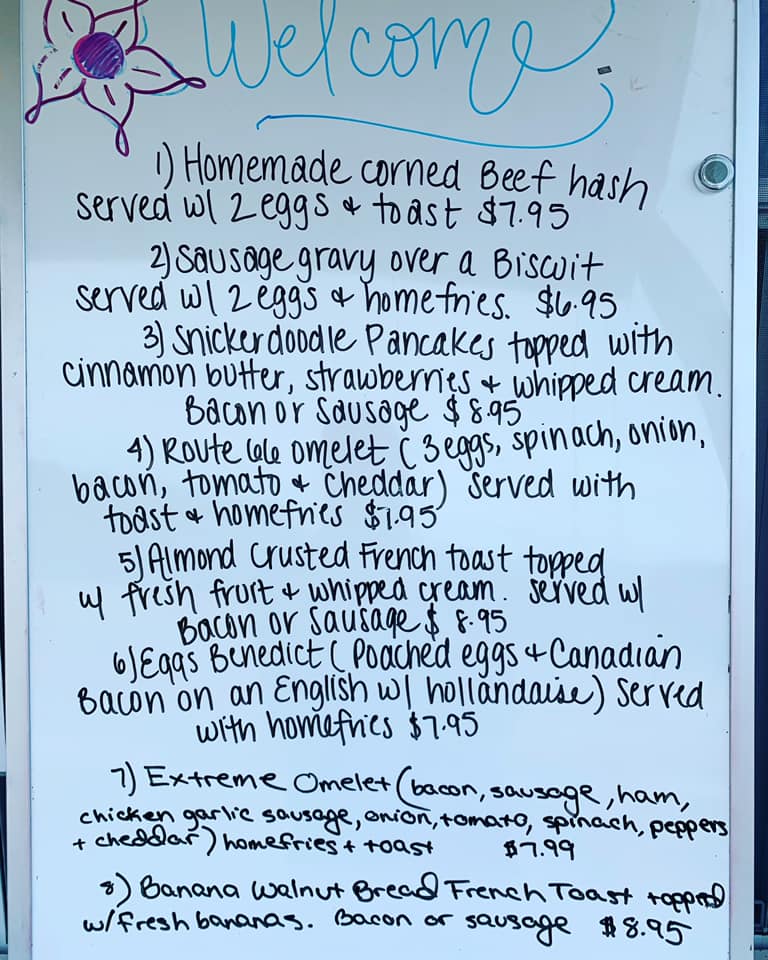 Welcome
1) Homemade corned Beef hash
served w/ 2 eggs & toast $7.95
2) Sausage gravy over a Biscuit
served w/ 2 eggs & homefries. $6.95
3) Snickerdoodle Pancakes topped with
cinnamon butter, strawberries & whipped cream.
Bacon or Sausage $8.95
4) Route 66 omelet (3 eggs, spinach, onion,
bacon, tomato & cheddar) served with
toast & homefries $7.95
5) Almond Crusted French toast topped
w/ fresh fruit & whipped cream. served w/
Bacon or Sausage $ 8.95
6) Eggs Benedict (Poached eggs & Canadian
Bacon on an English w/ hollandaise) served
with homefries $7.95
7) Extreme Omelet (bacon, sausage, ham,
chicken garlic sausage, onion, tomato, spinach, peppers
+ cheddar) homefries + toast $7.99
8) Banana Walnut Bread French Toast topped
w/ fresh bananas. Bacon or sausage $8.95